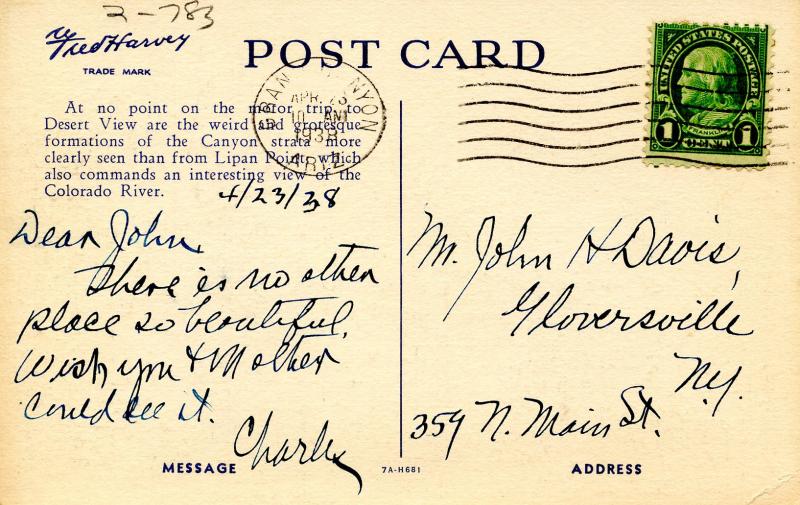 2-783
Fred Harvey
TRADE MARK
POST CARD
At no point on the motor trip to
Desert View are the weird and grotesque
formations of the Canyon strata more
clearly seen than from Lipan Point, which
also commands an interesting view of the
Colorado River.
GRAND CANYON
APR 23
10 AM
1938
ARIZ.
UNITED STATES POSTAGE
FRANKLIN
1 CENT 1
4/23/38
Dear John,
There is no other
place so beautiful.
Wish you & Mother
could see it.
Charles
Mr. John H Davis,
Gloversville
N.Y.
359 N. Main St.
MESSAGE
7A-H681
ADDRESS